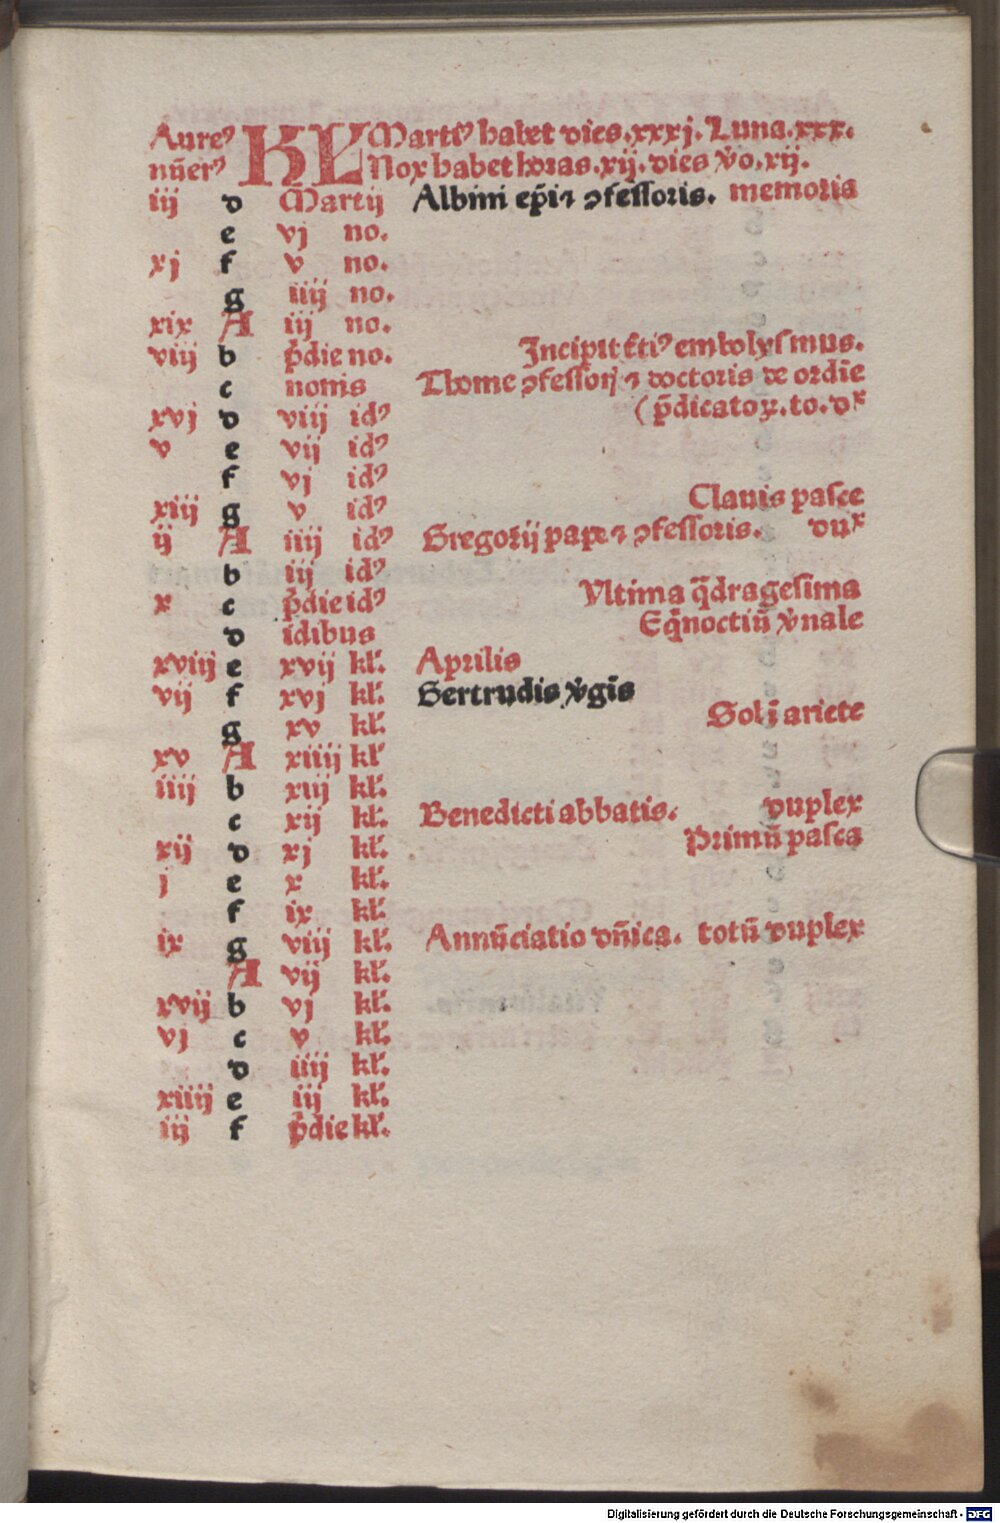 Aureꝰ KL Martiꝰ habet dies.xxxj.Luna.xxx.
nūerꝰ Nox habet horas.xij.dies v̉o.xij.
iij d Martij Albini ep̄i ⁊ ꝯfessoris. memoria
e vj no.
xj f v no.
g iiij no.
xix A iij no.
viij b p̄die no. Incipit t̄tiꝰ embolysmus.
c nonis Thome ꝯfessorꝭ ⁊ doctoris de ordīe
xvj d viij idꝰ (p̄dicatoꝝ.to.dˣ
v e vij idꝰ
f vj idꝰ
xiij g v idꝰ Clauis pasce
ij A iiij idꝰ Gregorij pape ⁊ ꝯfessoris. duˣ
b iij idꝰ
x c p̄die idꝰ Vltima q̄dragesima
d idibus Eq̄noctiū v̉nale
xviij e xvij kl̓. Aprilis
vij f xvj kl̓. Gertrudis v̉gīs
g xv kl̓. Sol ī ariete
xv A xiiij kl̓
iiij b xiij kl̓.
c xij kl̓. Benedicti abbatis. duplex
xij d xj kl̓. Primū pasca
j e x kl̓.
f ix kl̓.
ix g viij kl̓. Annūciatio dn̄ica. totū duplex
A vij kl̓.
xvij b vj kl̓.
vj c v kl̓.
d iiij kl̓.
xiiij e iij kl̓.
iij f p̄die kl̓.
Digitalisierung gefördert durch die Deutsche Forschungsgemeinschaft - DFG